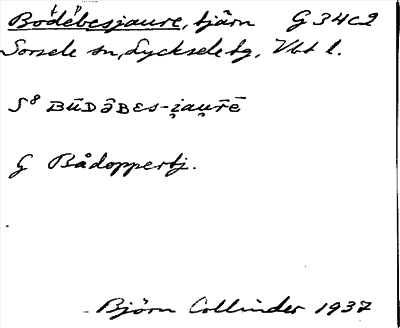 Bodebesjaure, tjärn G 34c2
Sorsele sn, Lycksele tg, Vbt l.
S8 BŪDəBES-i̯au̯rē
G Bådoppertj.
Björn Collinder 1937